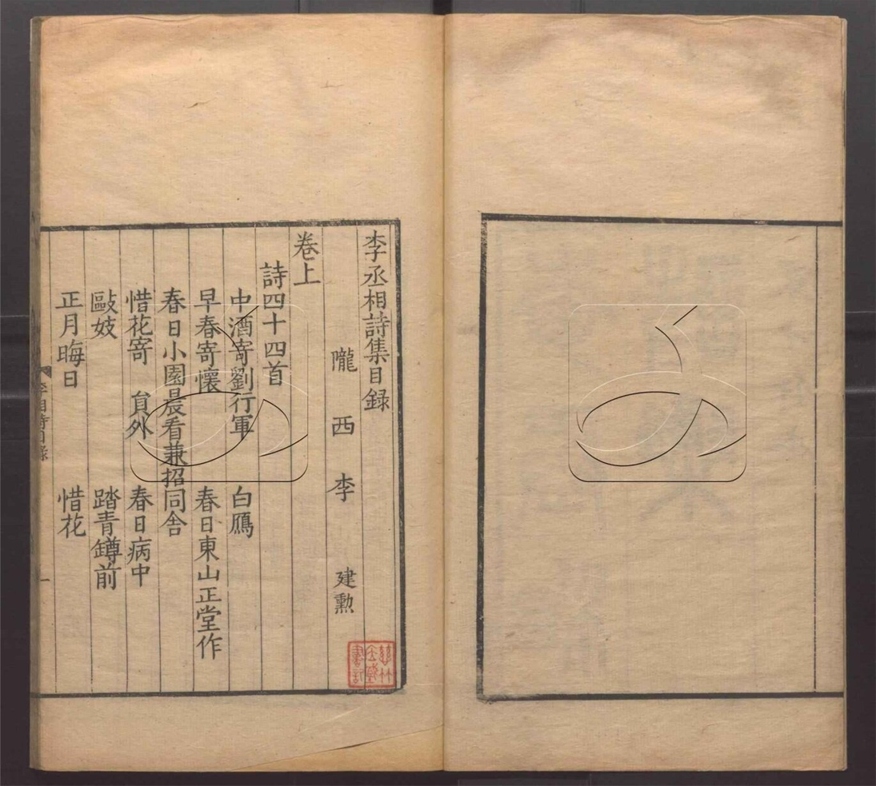 李丞相詩集目録
隴西李 建勲
卷上
詩四十四首
中酒寄劉行軍 白鴈
早春寄懷 春日東山正堂作
春日小園晨看兼招同舍
惜花寄 員外 春日病中
毆妓 踏青鐏前
正月晦日 惜花
李相詩目録 一